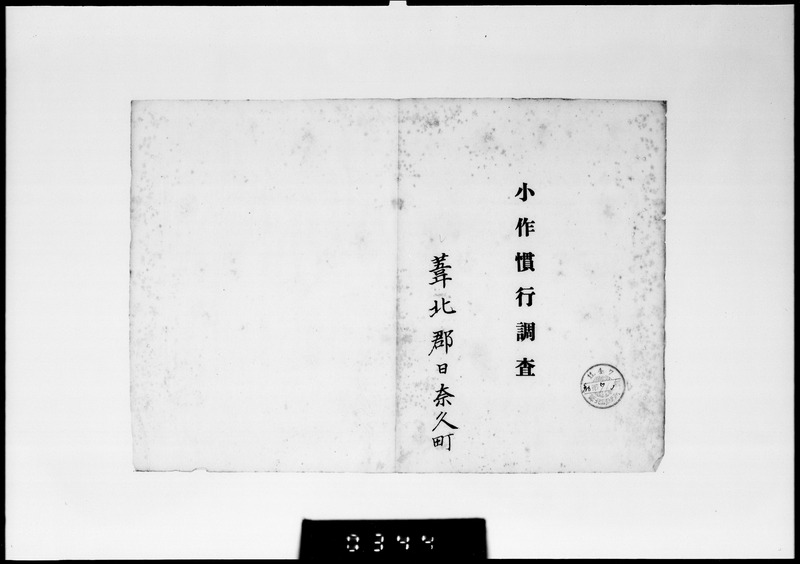 小作慣行調査
葦北郡日奈久町
0344